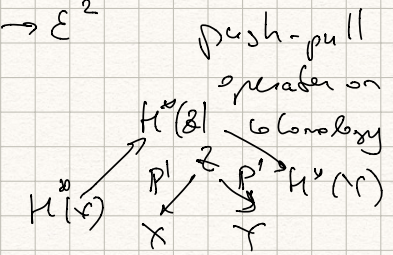 → ε²
push-pull
operator on
cohomology
H*(Z)
Z
P¹ P¹ H*(Y)
H*(X)
X Y